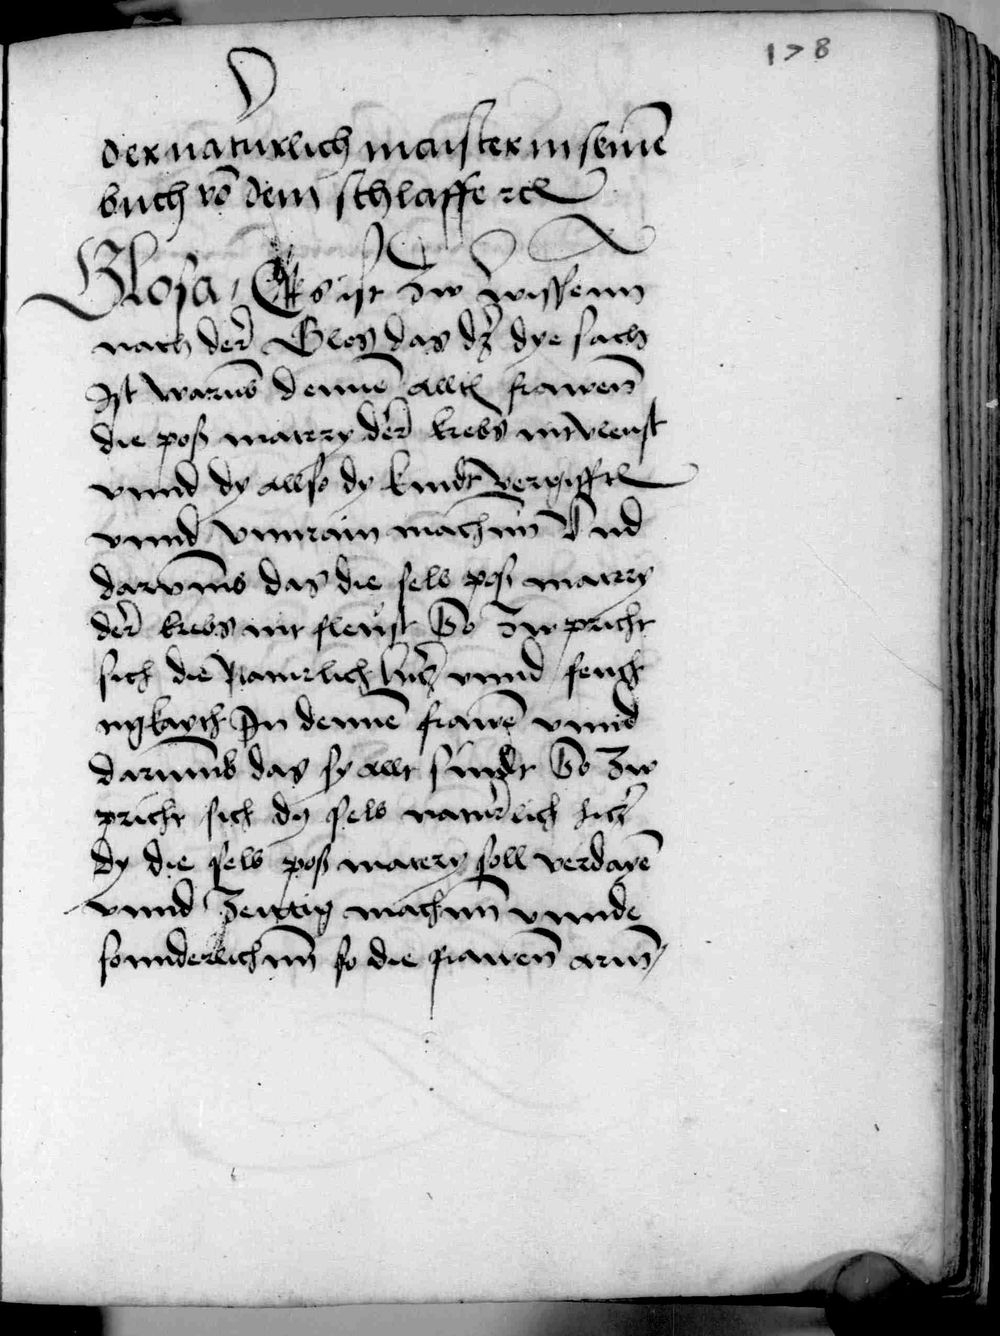 178
der naturlich maister in seinē
buch vō dem schlaffe ꝛc
Glosa / Es ist Zw wissenn
nach der Glos das dʒ dye sach
Ist warub dennē alltn frawen̄
die poß matrry der krebs nit vleust
vnnd dy allso dy kindt vergifftn
vnnd vnnrain machnn̄ Vnd
darvmb das die selb poß matrry
der krebs nit fleust So Zw pricht
sich die Naturlich hicʒ vnnd feuch
tigkaytt In dennē frawē vnnd
darumb das sy allt sindt So Zw
pricht sich dy selb naturlich hicʒ
dy die selb poß matery soll verdayē
vnnd Zeittig machnn̄ vnnde
sonnderlichnn̄ so die frawen̄ arm̄